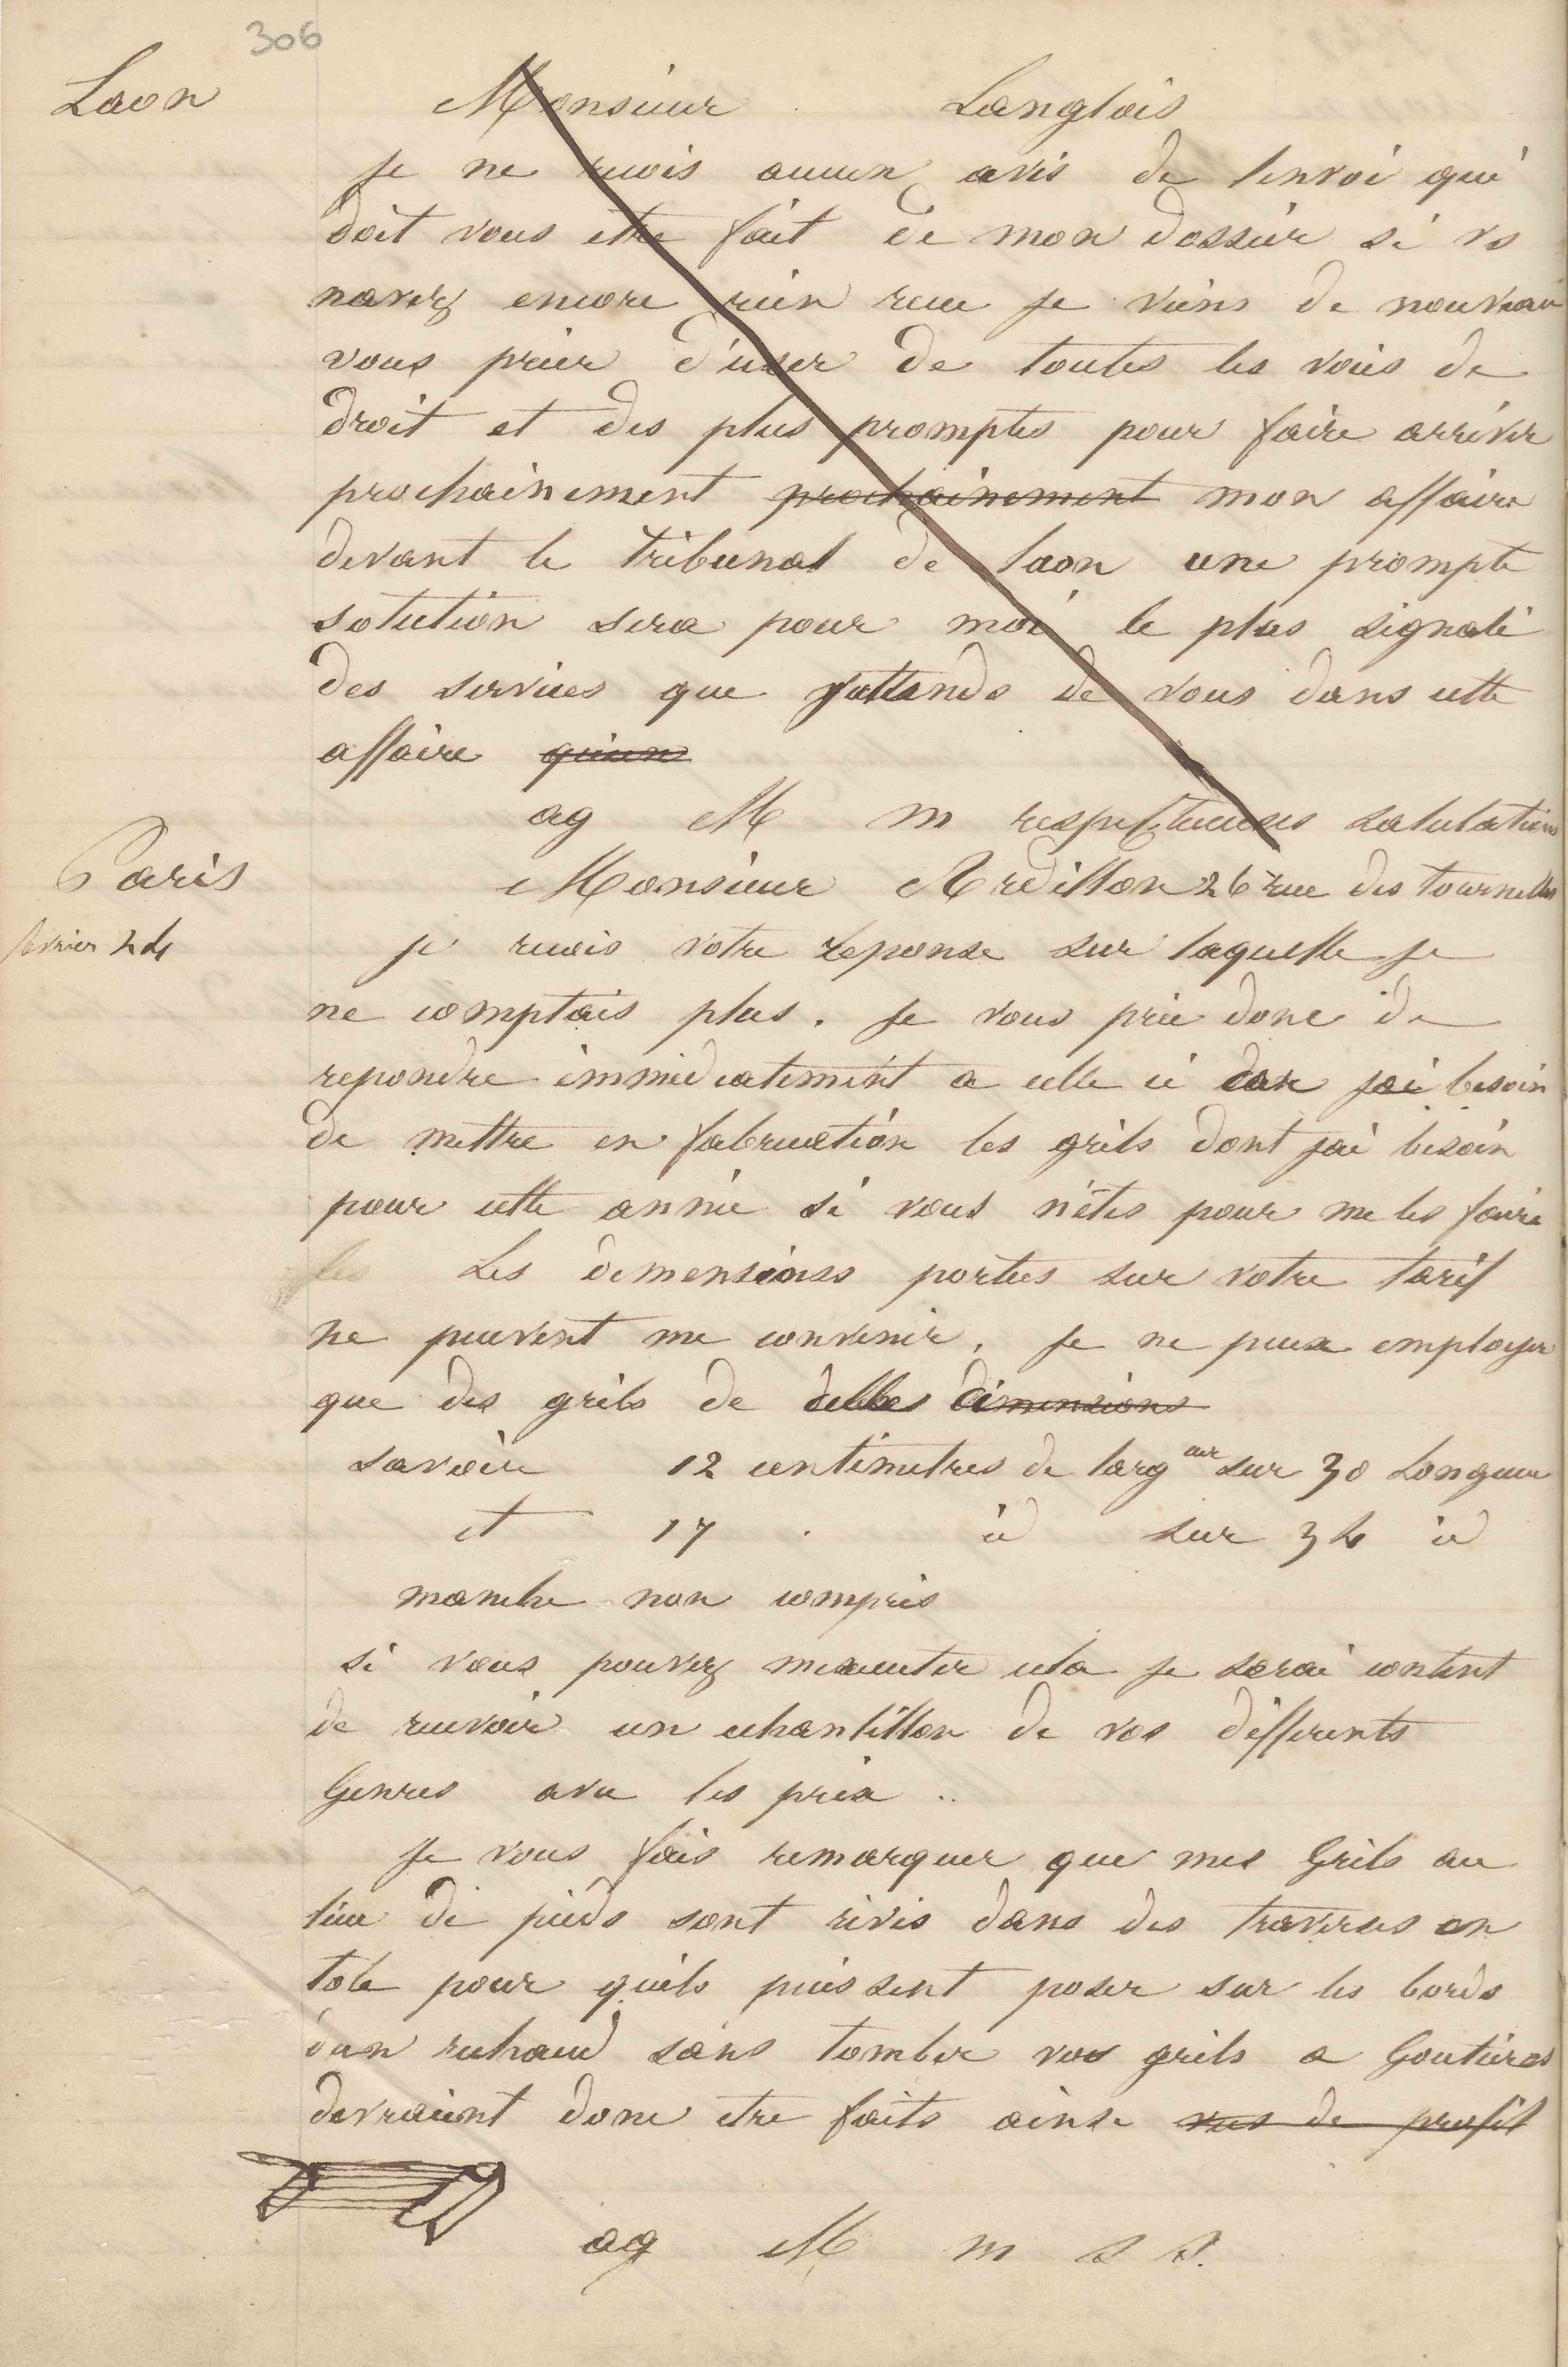 306
Laon
Monsieur Langlois
je ne recois aucun avis de lenvoi qui
doit vous etre fait de mon dossier si vs
navez encore rien recu je viens de nouveau
vous prier d'user de toutes les voies de
droit et des plus promptes pour faire arriver
prochainement prochainement mon affaire
devant le tribunal de laon une prompte
solution sera pour moi le plus signalé
des services que j'attends de vous dans cette
affaire
ag M m respectueuses salutations
Paris
Monsieur Ardillon 26 rue des tournelles
fevrier 24
je recois votre reponse sur laquelle je
ne comptais plus. je vous prie donc de
repondre immédiatement a celle ci car jai besoin
de mettre en fabrication les grils dont jai besoin
pour cette année si vous n'êtes pour me les faire
les Les dimensions portées sur votre tarif
ne peuvent me convenir. je ne peux employer
que des grils de dimensions
savoir 12 centimetres de largeur sur 30 Longueur
et 17 . id sur 34 id
manche non compris
si vous pouvez mexecuter cela je serai content
de recevoir un echantillon de vos differents
Genres avec les prix ..
Je vous fais remarquer que mes Grils au
lieu de pieds sont rivés dans des traverses en
tole pour quils puissent poser sur les bords
dun rechaud sans tomber vos grils a Goutieres
devraient donc etre faits ainsi vus de profil
ag M m s s.